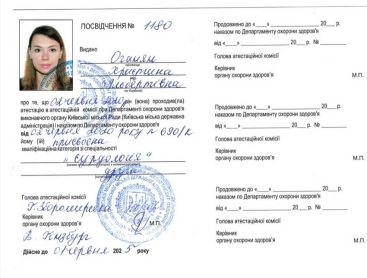 ПОСВІДЧЕННЯ № 1180
Видано Оганян
Христина
Альбертівна
про те, що 02 червня 2020 (вона) проходив(ла)
атестацію в атестаційній комісії при Департаменті охорони здоров'я
виконавчого органу Київської міської Ради (Київська міська державна
адміністрація) і наказом по Департаменту охорони здоров'я
від 02 червня 2020 року № 690/к
присвоєна
кваліфікаційна категорія зі спеціальності
друга
Голова атестаційної комісії
Керівник
органу охорони здоров'я
М.П.
В. Гінзбург
Дійсне до 01 червня 2025 року
Продовжено до «____» ____ 20__ р.
наказом по Департаменту охорони здоров'я
від «____» ____ 20__ р. №
Голова атестаційної комісії
Керівник
органу охорони здоров'я
М.П.
Продовжено до «____» ____ 20__ р.
наказом по Департаменту охорони здоров'я
від «____» ____ 20__ р. №
Голова атестаційної комісії
Керівник
органу охорони здоров'я
М.П.
Продовжено до «____» ____ 20__ р.
наказом по Департаменту охорони здоров'я
від «____» ____ 20__ р. №
Голова атестаційної комісії
Керівник
органу охорони здоров'я
М.П.